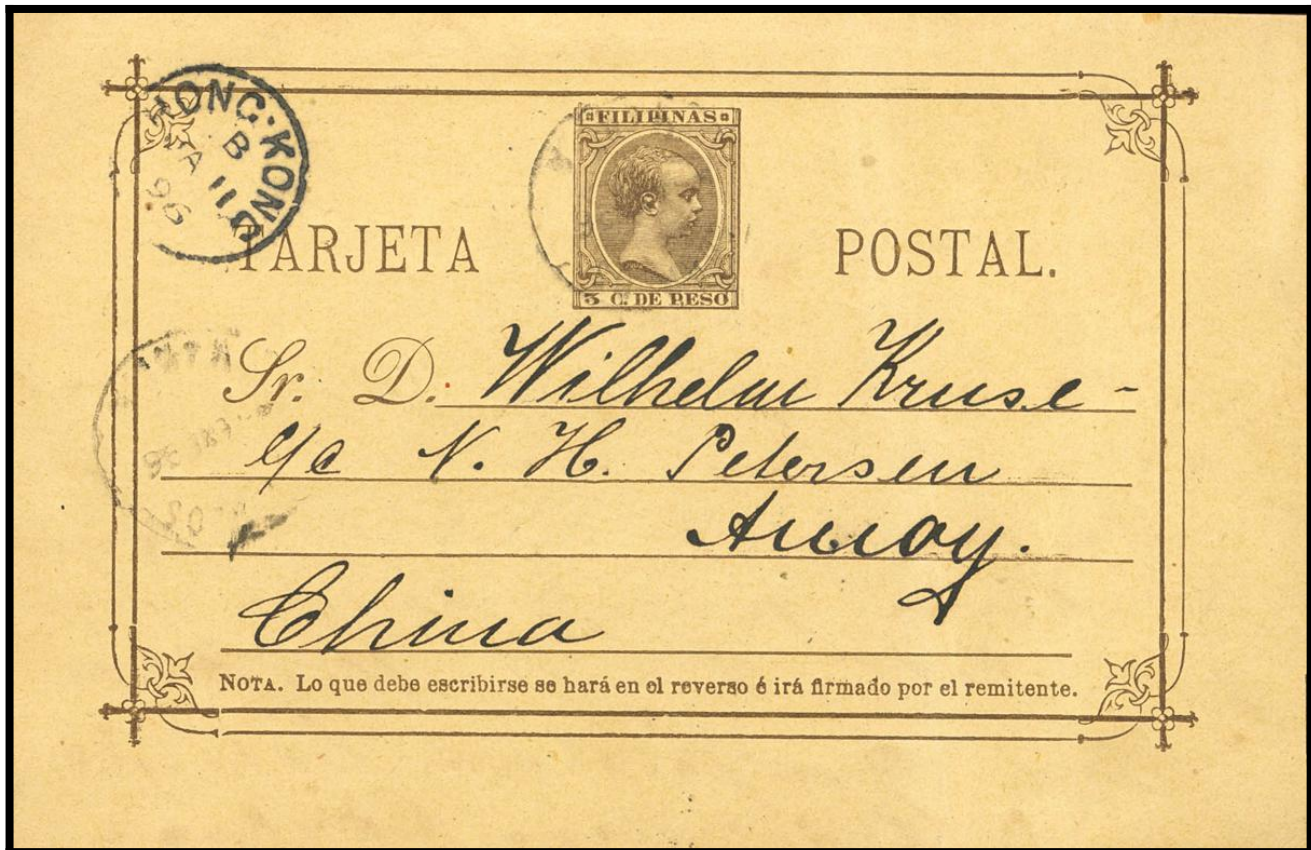 HONG·KONG
B
JA 11
96
FILIPINAS
3 C. DE PESO
TARJETA POSTAL.
Sr. D. Wilhelm Kruse -
c/o N. H. Petersen
Amoy.
China
NOTA. Lo que debe escribirse se hará en el reverso é irá firmado por el remitente.